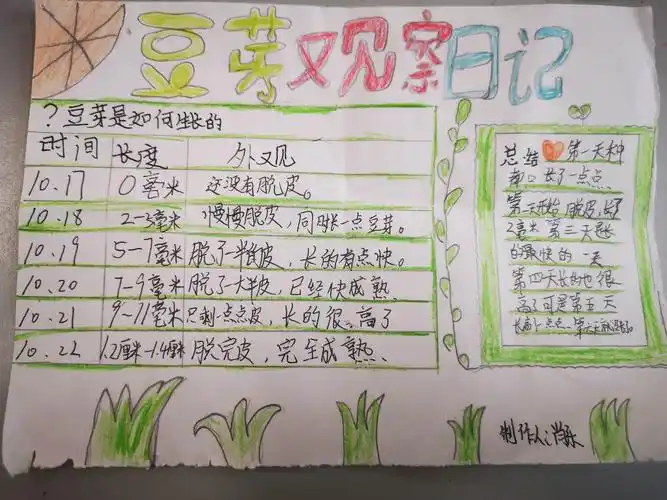 豆芽观察日记
？豆芽是如何生长的
时间 长度 外观
10.17 0毫米 还没有脱皮。
10.18 2-3毫米 慢慢脱皮，同时长一点豆芽。
10.19 5-7毫米 脱了一半的皮，长的有点快。
10.20 7-9毫米 脱了大半皮，已经快成熟
10.21 9-11毫米 只剩一点点皮，长的很高了
10.22 1.2厘米-1.4厘米 脱完皮，完全成熟、
总结 第一天种
长了一点点
第二天开始脱皮，长了
2毫米 第三天是长
的最快的一天
第四天长的也很
高了可是第五天
长高一点点、第六天
制作人：